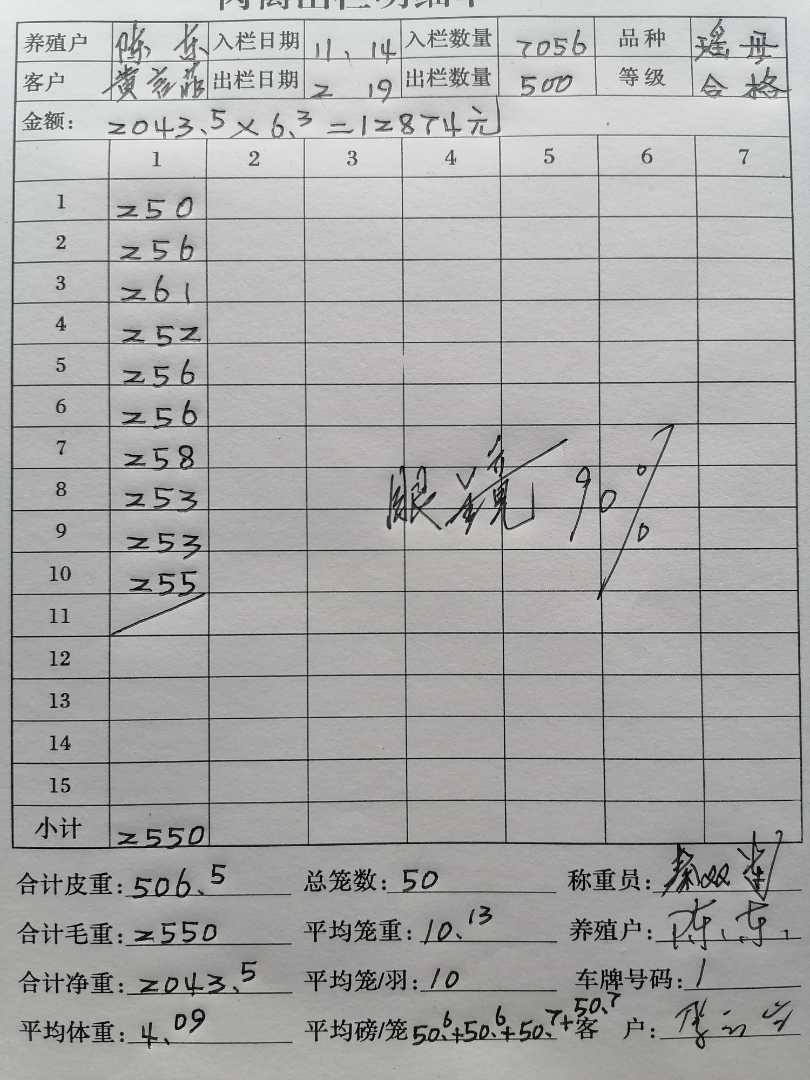 养殖户 陈东 入栏日期 11、14 入栏数量 7056 品种 瑶母
客户 黄 出栏日期 2 19 出栏数量 500 等级 合格
金额: 2043.5×6.3=12874元
1 2 3 4 5 6 7
1 250
2 256
3 261
4 252
5 256
6 256
7 258
8 253
9 253
10 255
眼镜 90%
11
12
13
14
15
小计 2550
合计皮重: 506.5 总笼数: 50 称重员:
合计毛重: 2550 平均笼重: 10.13 养殖户: 陈东
合计净重: 2043.5 平均笼/羽: 10 车牌号码: /
平均体重: 4.09 平均磅/笼 50.6+50.6+50.7+50.7 客 户: